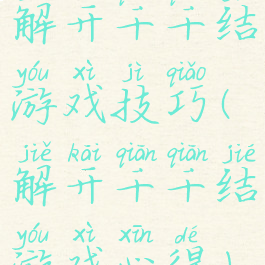 解开千千结
yóu xì jì qiǎo
游戏技巧(
jiě kāi qiān qiān jié
解开千千结
yóu xì xīn dé
游戏心得)